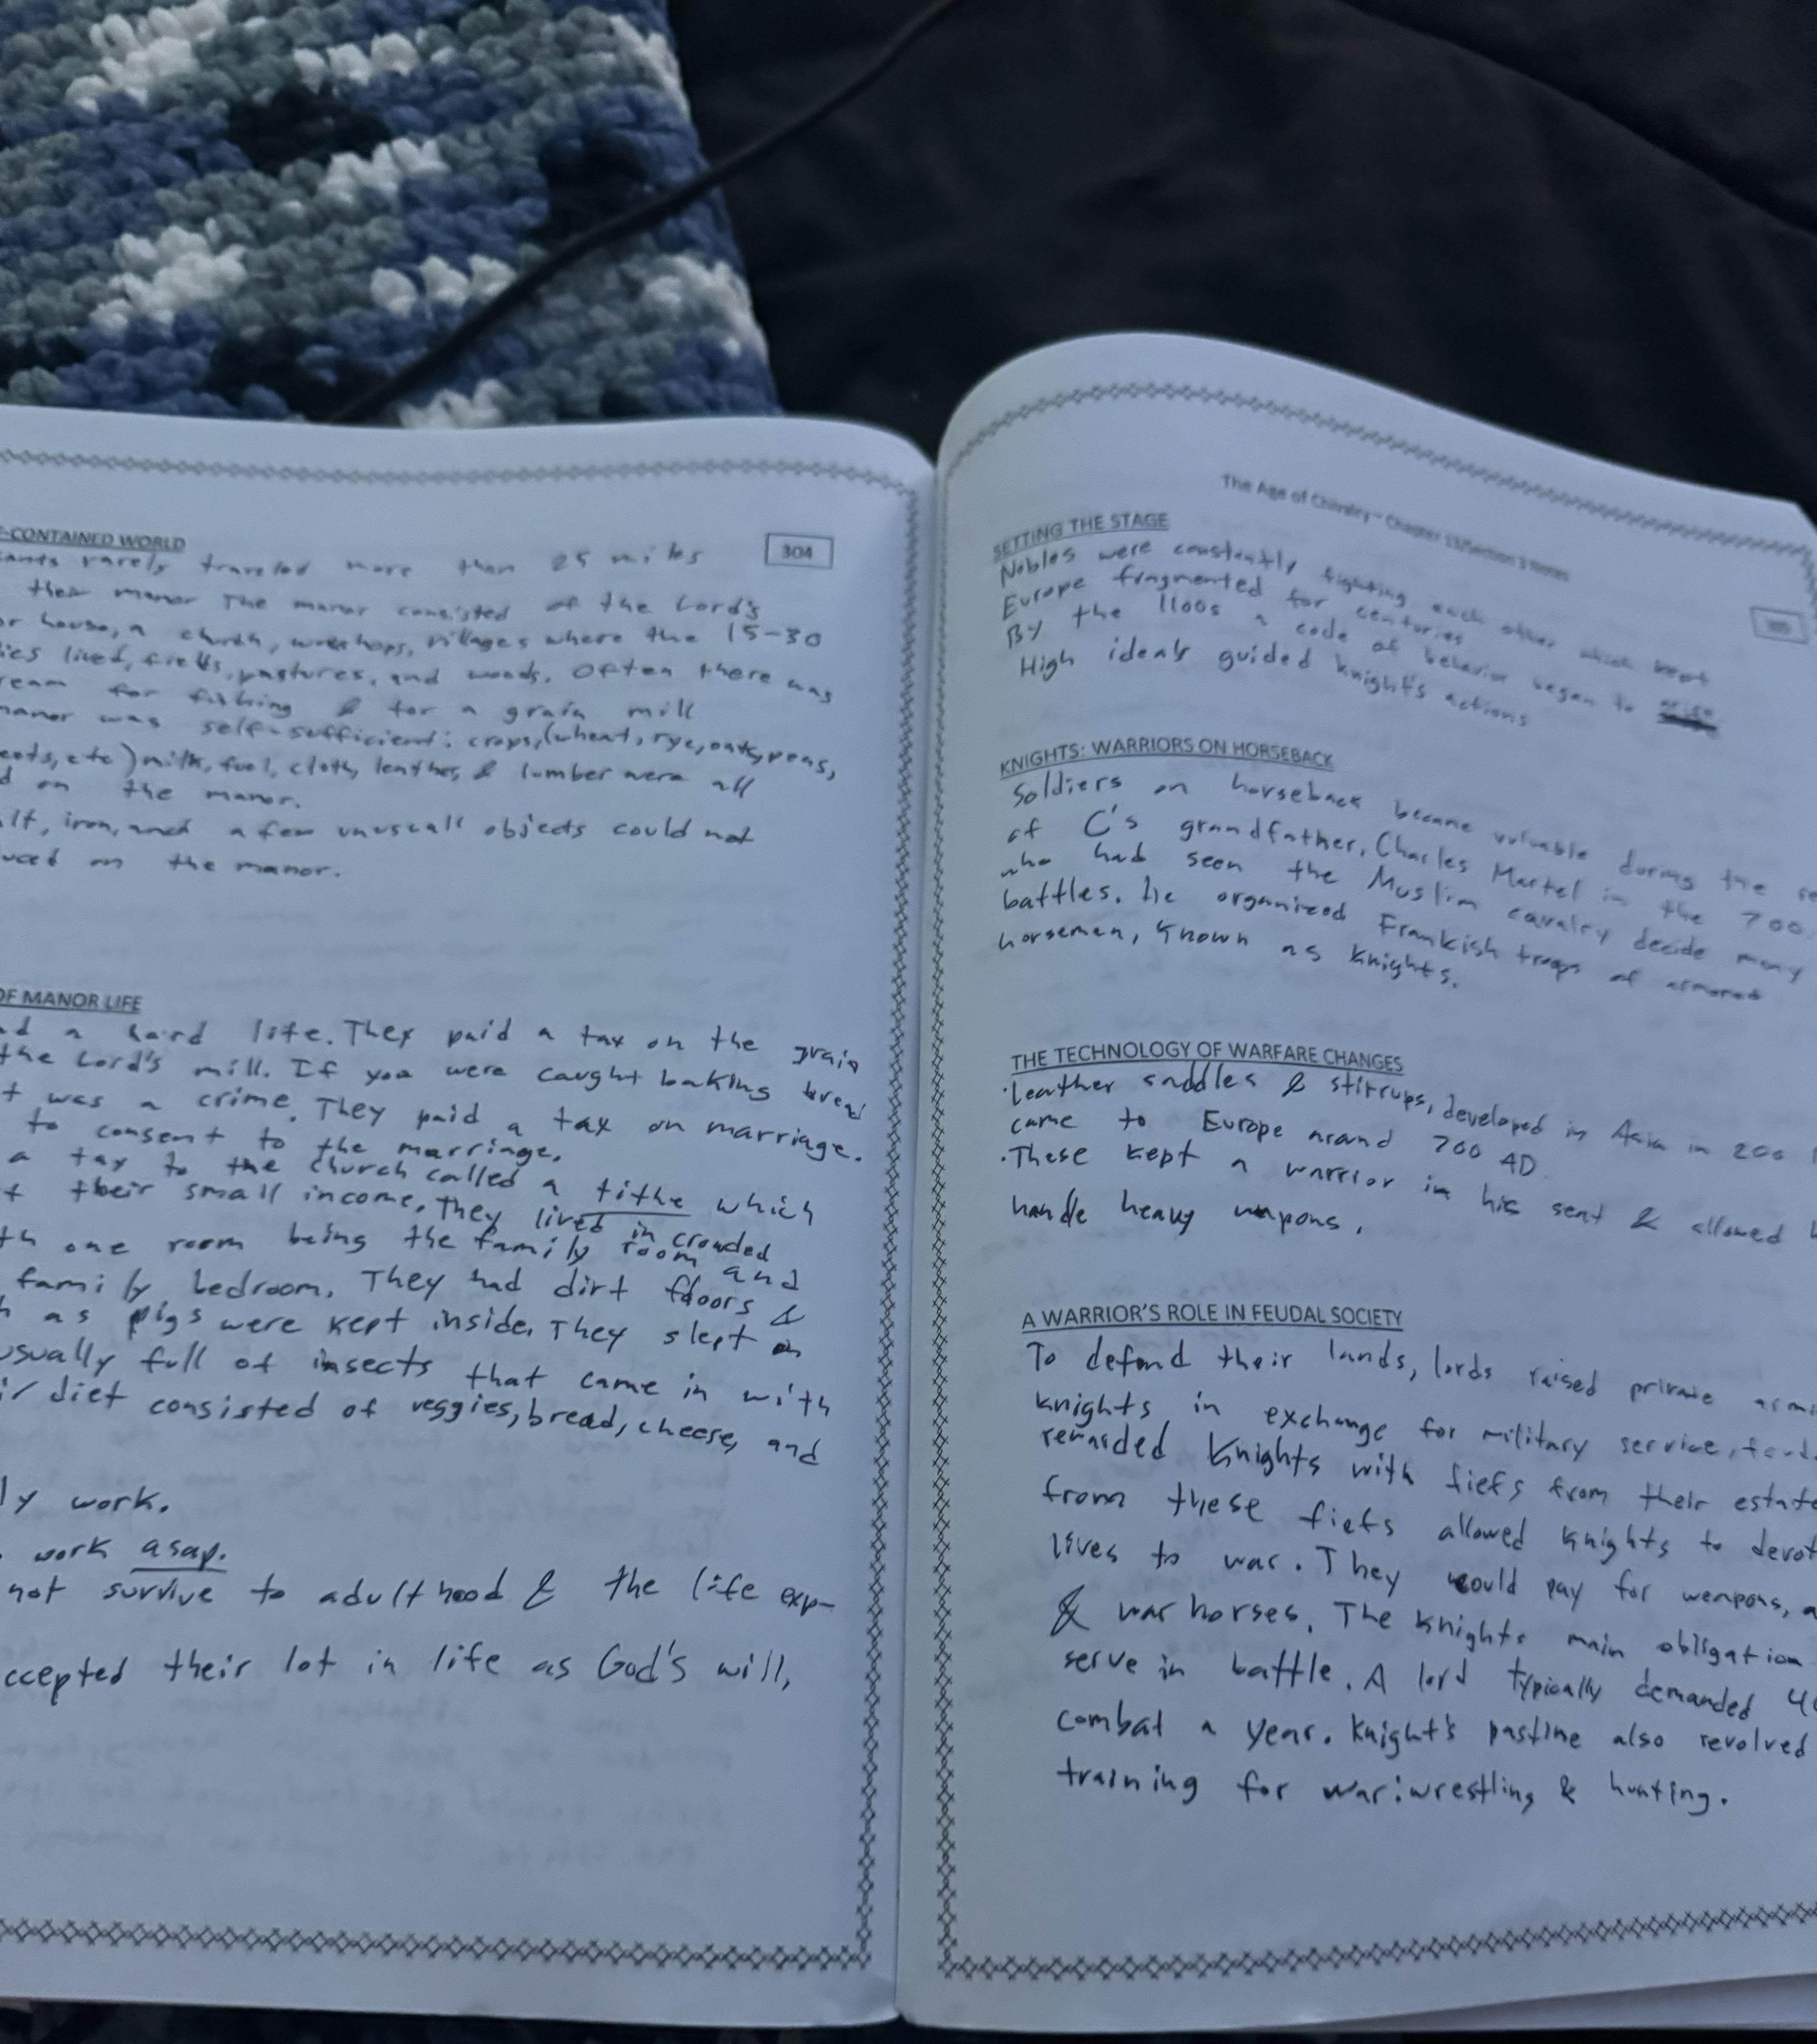 -CONTAINED WORLD
304
ants rarely traveled more than 25 miles
their manor The manor consisted of the Lord's
or house, a church, workshops, villages where the 15-30
ies lived, fields, pastures, and woods. Often there was
ream for fishing & for a grain mill
manor was self-sufficient: crops, (wheat, rye, oats, peas,
eets, etc) milk, fuel, cloth, leather, & lumber were all
d on the manor.
lt, iron, and a few unusuall objects could not
uced on the manor.
OF MANOR LIFE
ad a hard life. They paid a tax on the grain
the Lord's mill. If you were caught baking bread
t was a crime. They paid a tax on marriage.
to consent to the marriage.
a tax to the church called a tithe which
f their small income. They lived in crowded
th one room being the family room and
family bedroom. They had dirt floors &
h as pigs were kept inside. They slept on
usually full of insects that came in with
ir diet consisted of veggies, bread, cheese, and
ly work.
work asap.
not survive to adulthood & the life exp-
ccepted their lot in life as God's will,
The Age of Chivalry - Chapter 13 Section 3 Notes
SETTING THE STAGE
Nobles were constantly fighting each other which kept
Europe fragmented for centuries
By the 1100s a code of behavior began to arise.
High ideals guided knight's actions
KNIGHTS: WARRIORS ON HORSEBACK
Soldiers on horseback became valuable during the re
of C's grandfather, Charles Martel in the 700.
who had seen the Muslim cavalry decide many
battles. he organized Frankish troops of armored
horsemen, known as knights.
THE TECHNOLOGY OF WARFARE CHANGES
·Leather saddles & stirrups, developed in Asia in 200
came to Europe around 700 AD
·These kept a warrior in his seat & allowed h
handle heavy weapons.
A WARRIOR'S ROLE IN FEUDAL SOCIETY
To defend their lands, lords raised private armi
knights in exchange for military service, feud
rewarded knights with fiefs from their estate
from these fiefs allowed knights to devot
lives to war. They could pay for weapons, a
& war horses. The knights main obligation
serve in battle. A lord typically demanded 4
combat a year. Knight's pastime also revolved
training for war: wrestling & hunting.